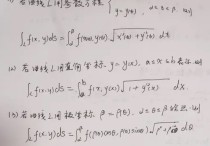 (1) 若曲线L用参数方程 { y = y(θ), α≤θ≤β 则
∫_L f(x,y)ds = ∫_α^β f(x(θ), y(θ)) √(x'²(θ) + y'²(θ)) dθ
(2) 若曲线L用直角坐标 y = y(x), a≤x≤b 表示, 则
∫_L f(x,y)ds = ∫_a^b f(x, y(x)) √(1 + y'²(x)) dx.
(3) 若曲线L用极坐标 ρ = ρ(θ), α≤θ≤β 给出, 则
∫_L f(x,y)ds = ∫_α^β f(ρ(θ)cosθ, ρ(θ)sinθ) √(ρ² + ρ'²) dθ